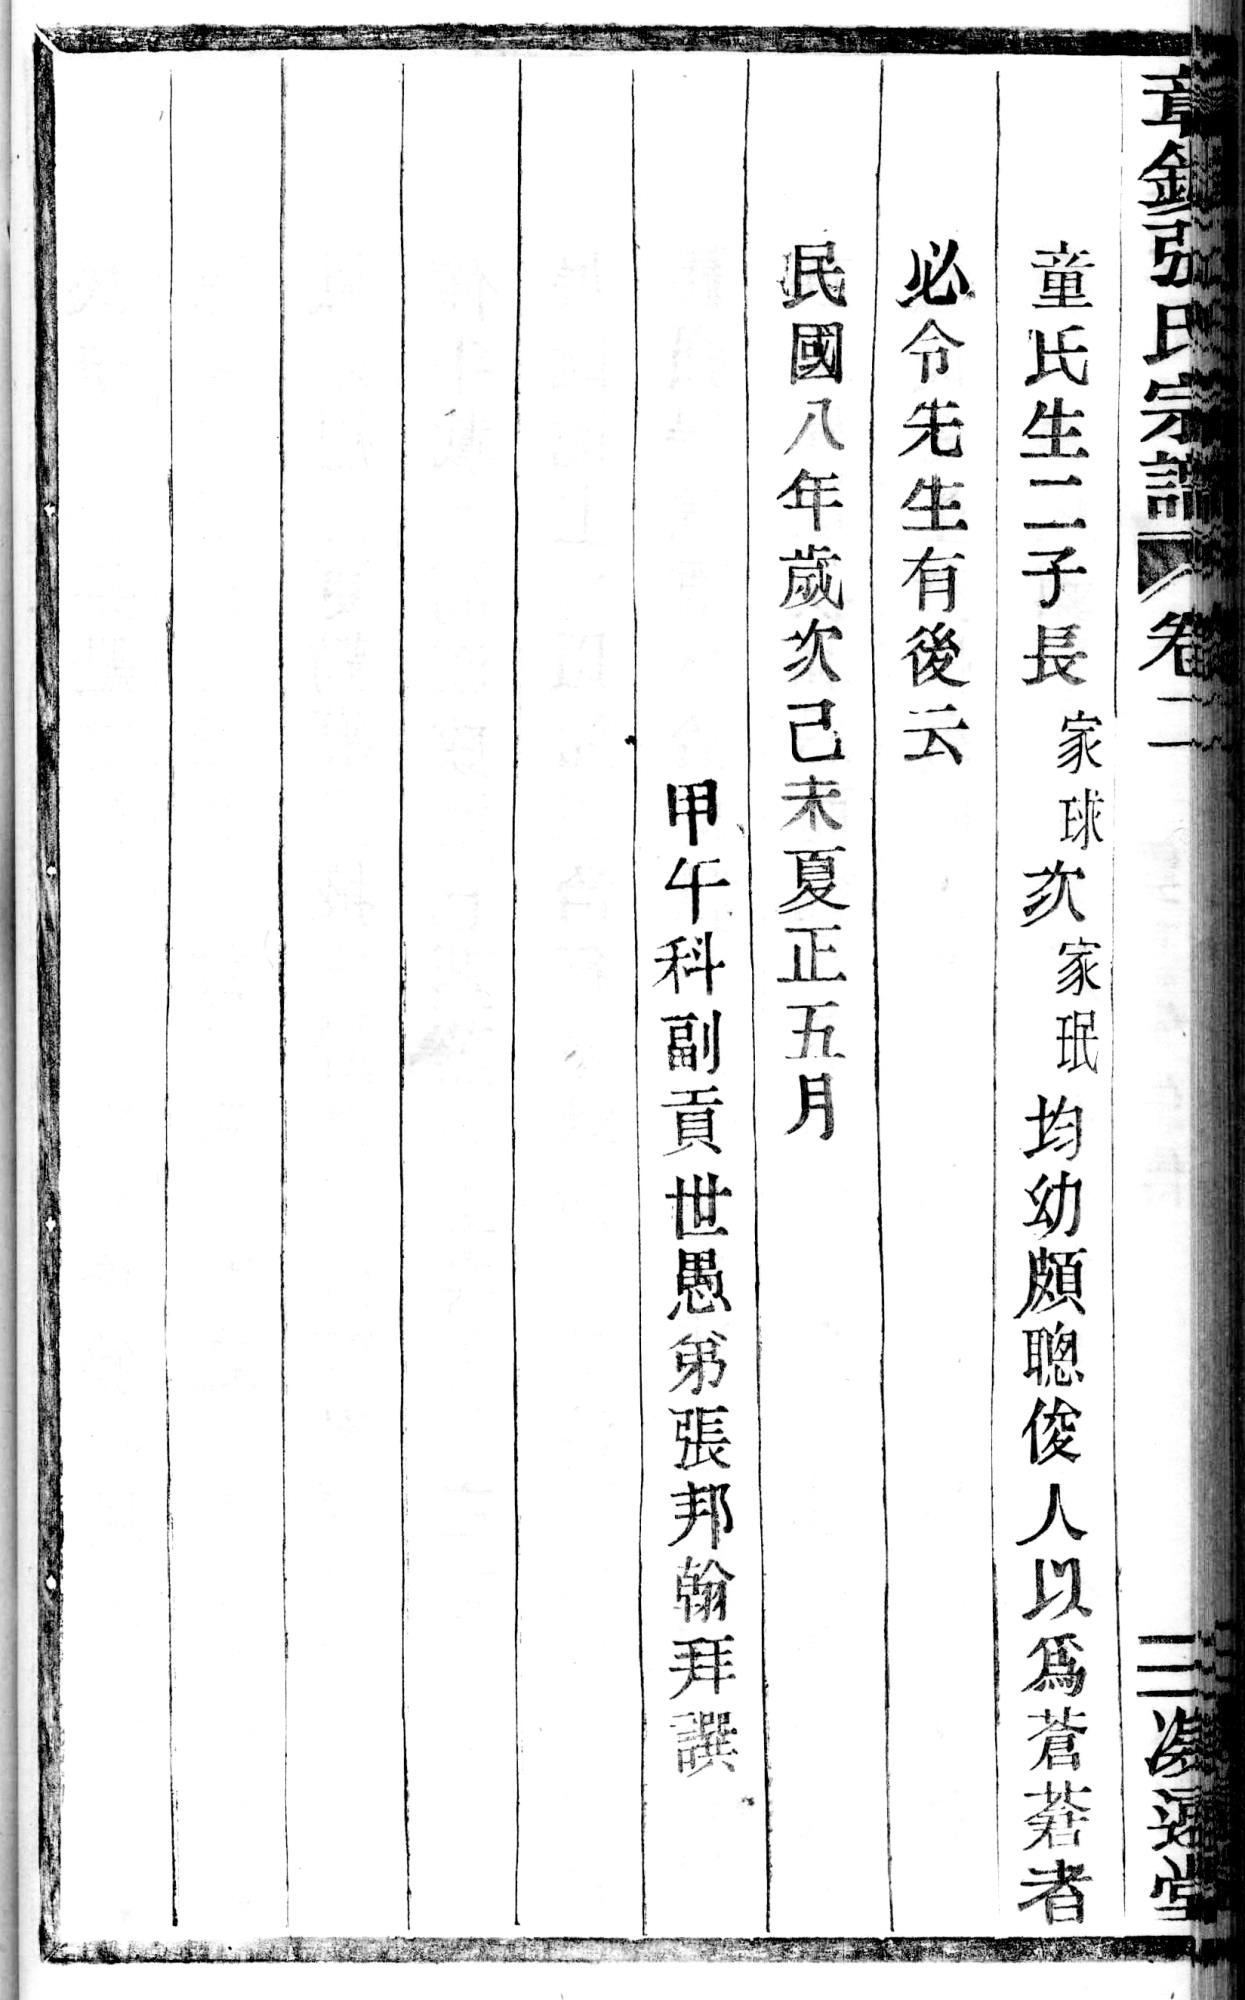 章鎮張氏宗譜 卷二 三 凌雲堂
童氏生二子長家球次家珉均幼頗聰俊人以爲蒼蒼者
必令先生有後云
民國八年歲次己未夏正五月
甲午科副貢世愚弟張邦翰拜譔